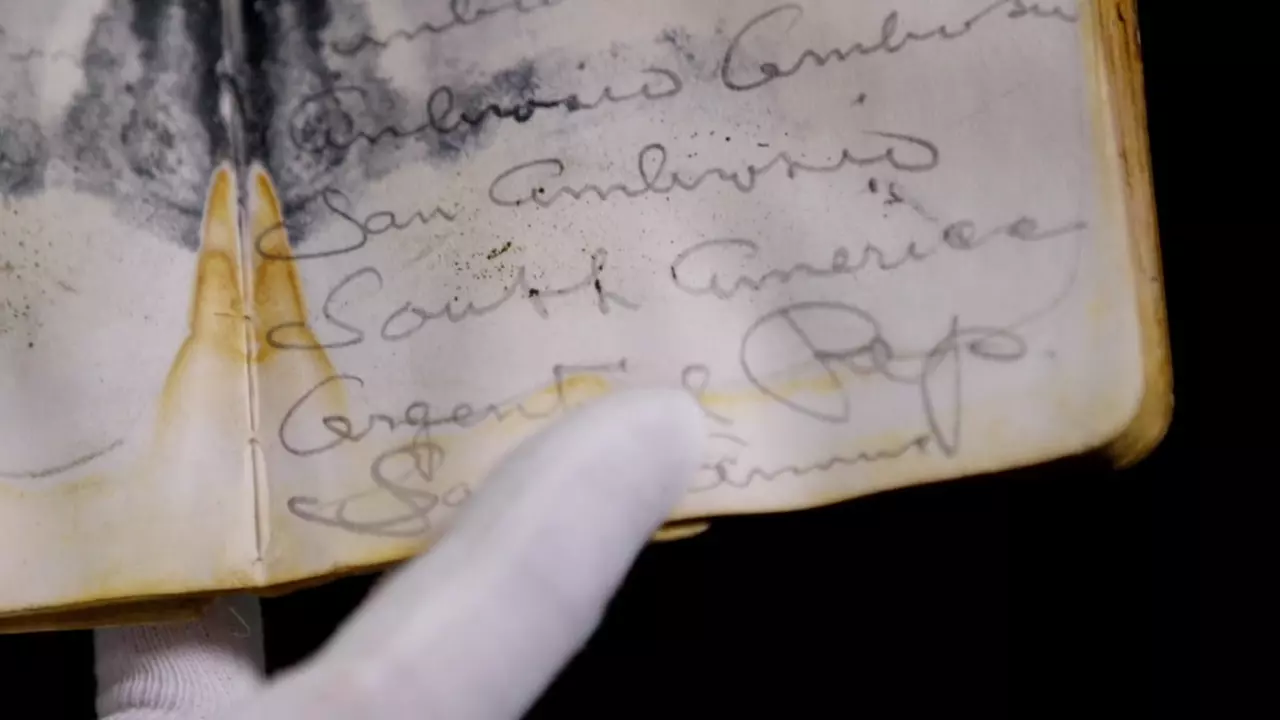 Ambrosio Ambrosio
San Ambrosio
South America
Argentine Rep.